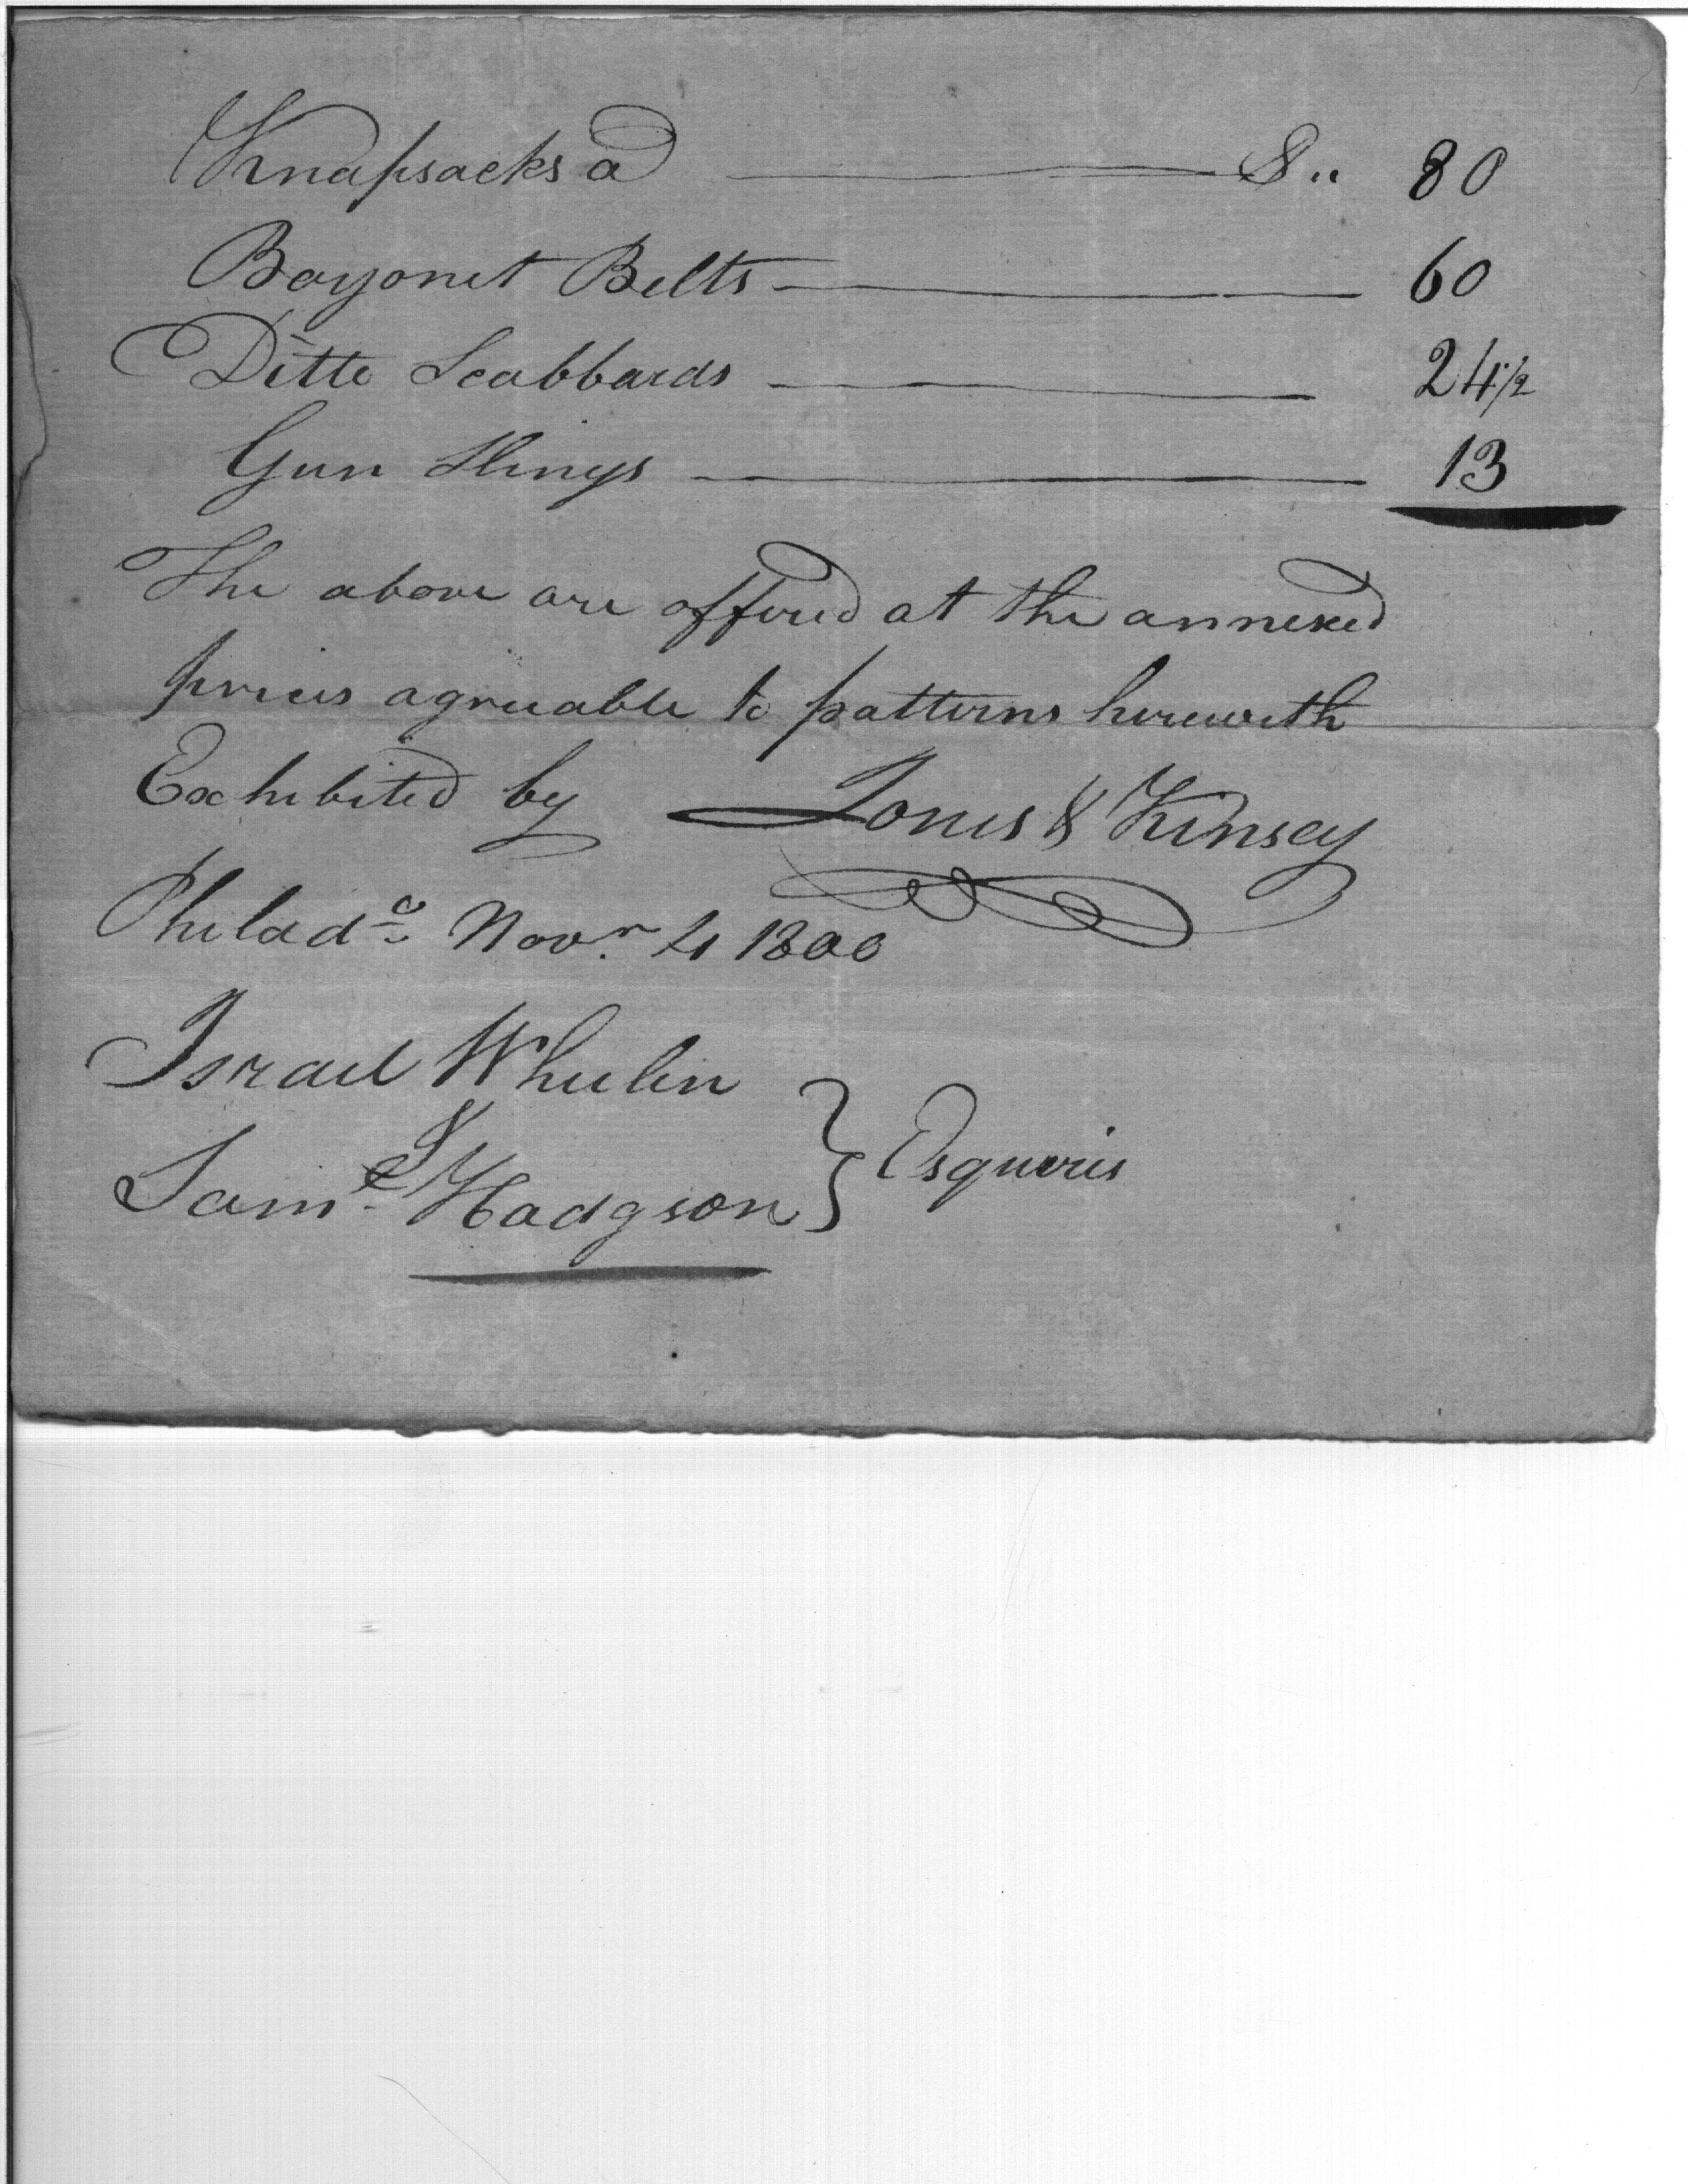 Knapsacks a $ ,, 80
Bayonet Belts 60
Ditto Scabbards 24 1/2
Gun Slings 13
The above are offered at the annexed
prices agreeable to patterns herewith
Exhibited by Jones & Kinsey
Philad.a Nov.r 4 1800
Israel Whelen
&
Sam.l Hodgson } Esquires